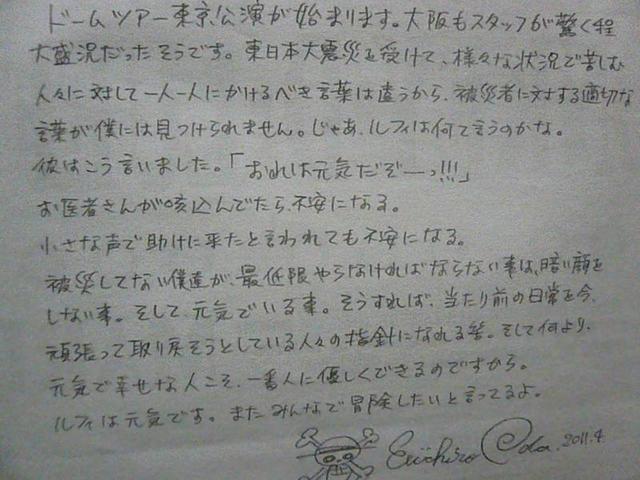 ドームツアー東京公演が始まります。大阪もスタッフが驚く程
大盛況だったそうです。東日本大震災を受けて、様々な状況で苦しむ
人々に対して一人一人にかけるべき言葉は違うから、被災者に対する適切な
言葉が僕には見つけられません。じゃあ、ルフィは何て言うのかな。
彼はこう言いました。「おれは元気だぞーっ!!!」
お医者さんが咳込んでたら、不安になる。
小さな声で助けに来たと言われても不安になる。
被災してない僕達が、最低限やらなければならない事は、暗い顔を
しない事。そして、元気でいる事。そうすれば、当たり前の日常を今、
頑張って取り戻そうとしている人々の指針になれる筈。そして何より、
元気で幸せな人こそ、一番人に優しくできるのですから。
ルフィは元気です。またみんなで冒険したいと言ってるよ。
Eiichiro Oda. 2011.4